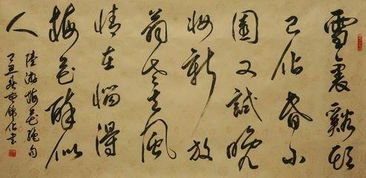 雪裏谿頭
已佔春小
園又試晚
妝新放
翁老去風
情在惱得
梅花醉似
人
陸游梅花絕句
丁丑
書